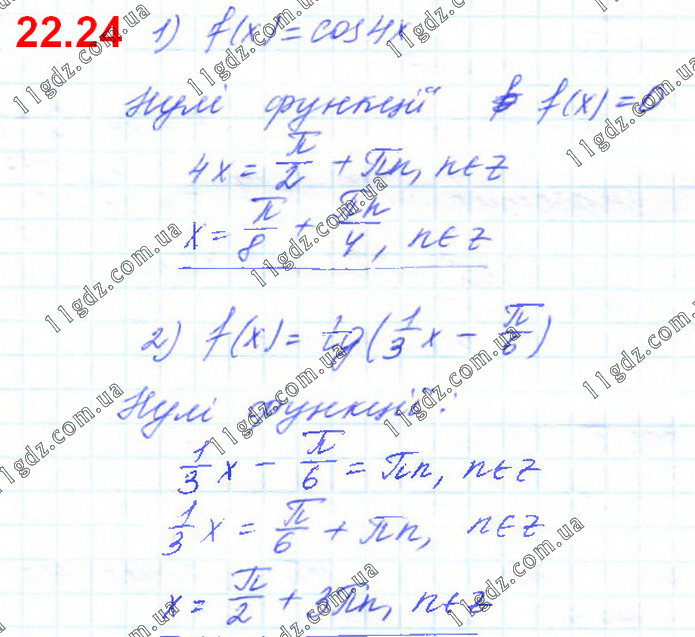 22.24 1) f(x) = cos4x
Нулі функції f(x) = 0
4x = π/2 + πn, n∈Z
x = π/8 + πn/4, n∈Z
2) f(x) = tg(1/3 x − π/6)
Нулі функції:
1/3 x − π/6 = πn, n∈Z
1/3 x = π/6 + πn, n∈Z
x = π/2 + 3πn, n∈Z
11gdz.com.ua